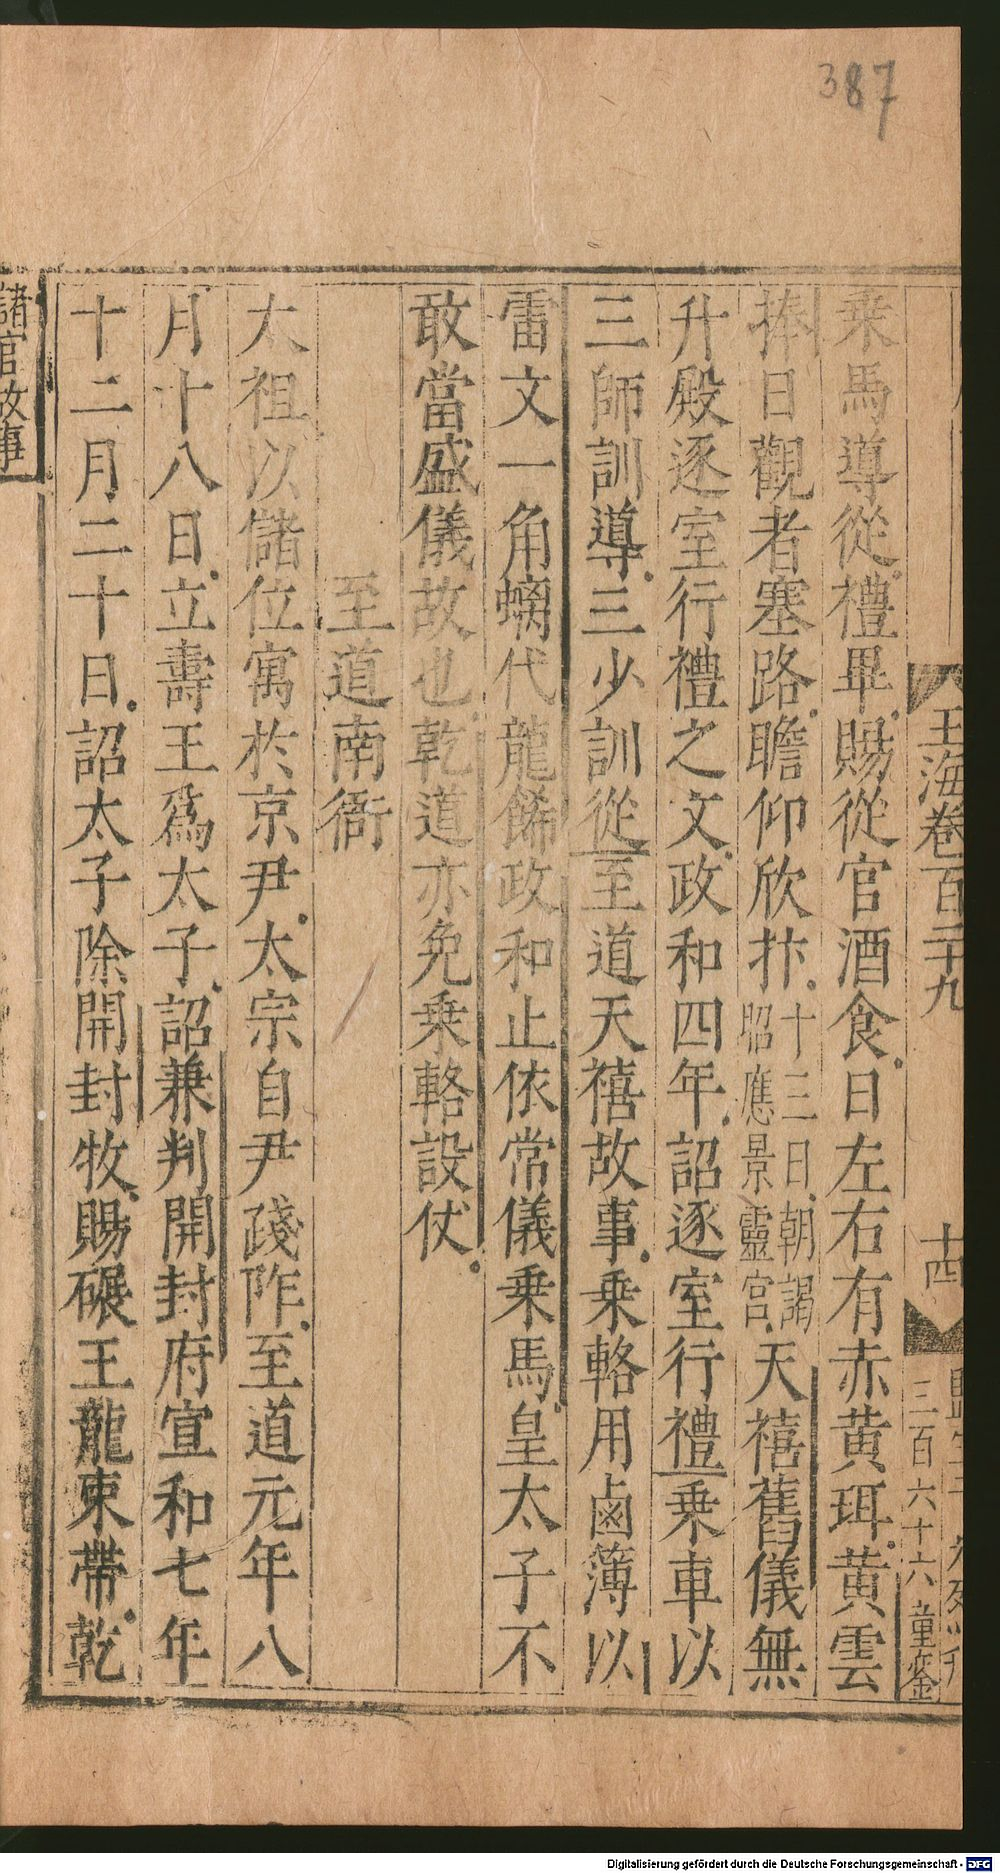 387
玉海卷百二十九
十四
三百六十六 童鎏
乘馬導從禮畢賜從官酒食日左右有赤黃珥黃雲
捧日觀者塞路瞻仰欣抃十三日朝謁昭應景靈宮天禧舊儀無
升殿逐室行禮之文政和四年詔逐室行禮乗車以
三師訓導三少訓從至道天禧故事乗輅用鹵簿以
雷文一角螭代龍餙政和止依常儀乗馬皇太子不
敢當盛儀故也乾道亦免乗輅設仗
至道南衙
太祖以儲位寓於京尹太宗自尹踐阼至道元年八
月十八日立壽王爲太子詔兼判開封府宣和七年
十二月二十日詔太子除開封牧賜碾玉龍束帶乾
諸官故事
Digitalisierung gefördert durch die Deutsche Forschungsgemeinschaft - DFG